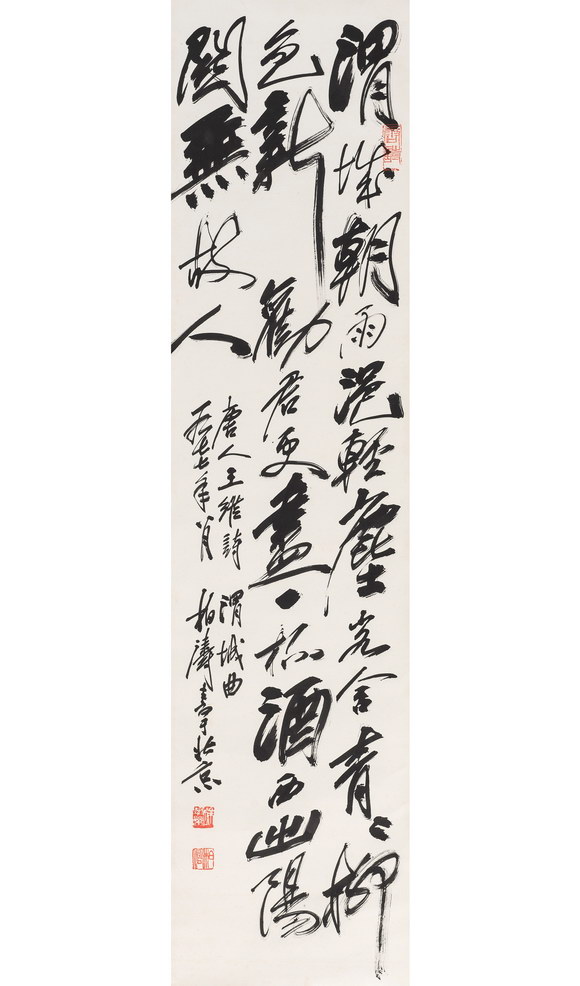 渭城朝雨浥輕塵客舍青〻柳
色新勸君更盡一杯酒西出陽
關無故人
唐人王維詩 渭城曲
一九七七年八月 柏濤書于北京